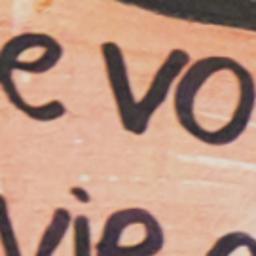 e vo
vie